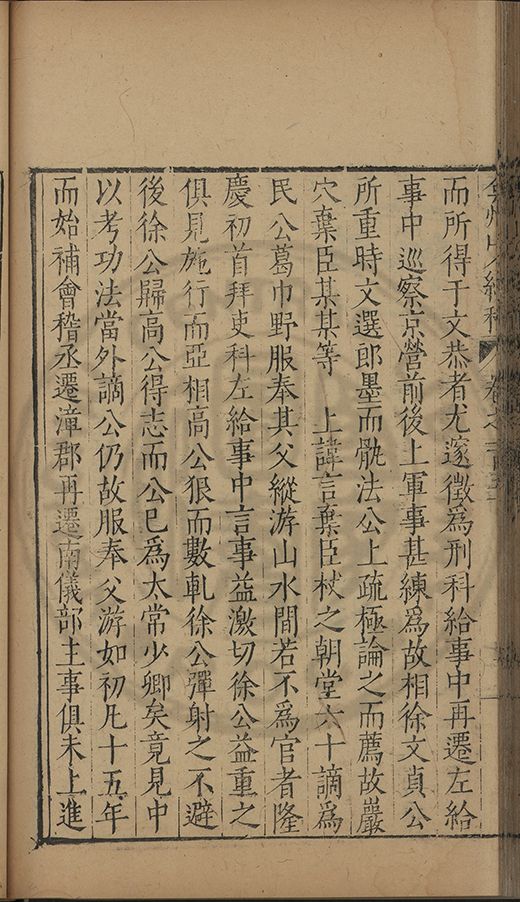 而所得于文恭者尤邃徵為刑科給事中再遷左給
事中巡察京營前後上軍事甚練為故相徐文貞公
所重時文選郎墨而骩法公上疏極論之而薦故嚴
穴棄臣某某等　上諱言棄臣杖之朝堂六十謫為
民公葛巾野服奉其父縱游山水間若不為官者隆
慶初首拜吏科左給事中言事益激切徐公益重之
俱見施行而亞相高公狠而數軋徐公彈射之不避
後徐公歸高公得志而公已為太常少卿矣竟見中
以考功法當外謫公仍故服奉父游如初凡十五年
而始補會稽丞遷漳郡再遷南儀部主事俱未上進